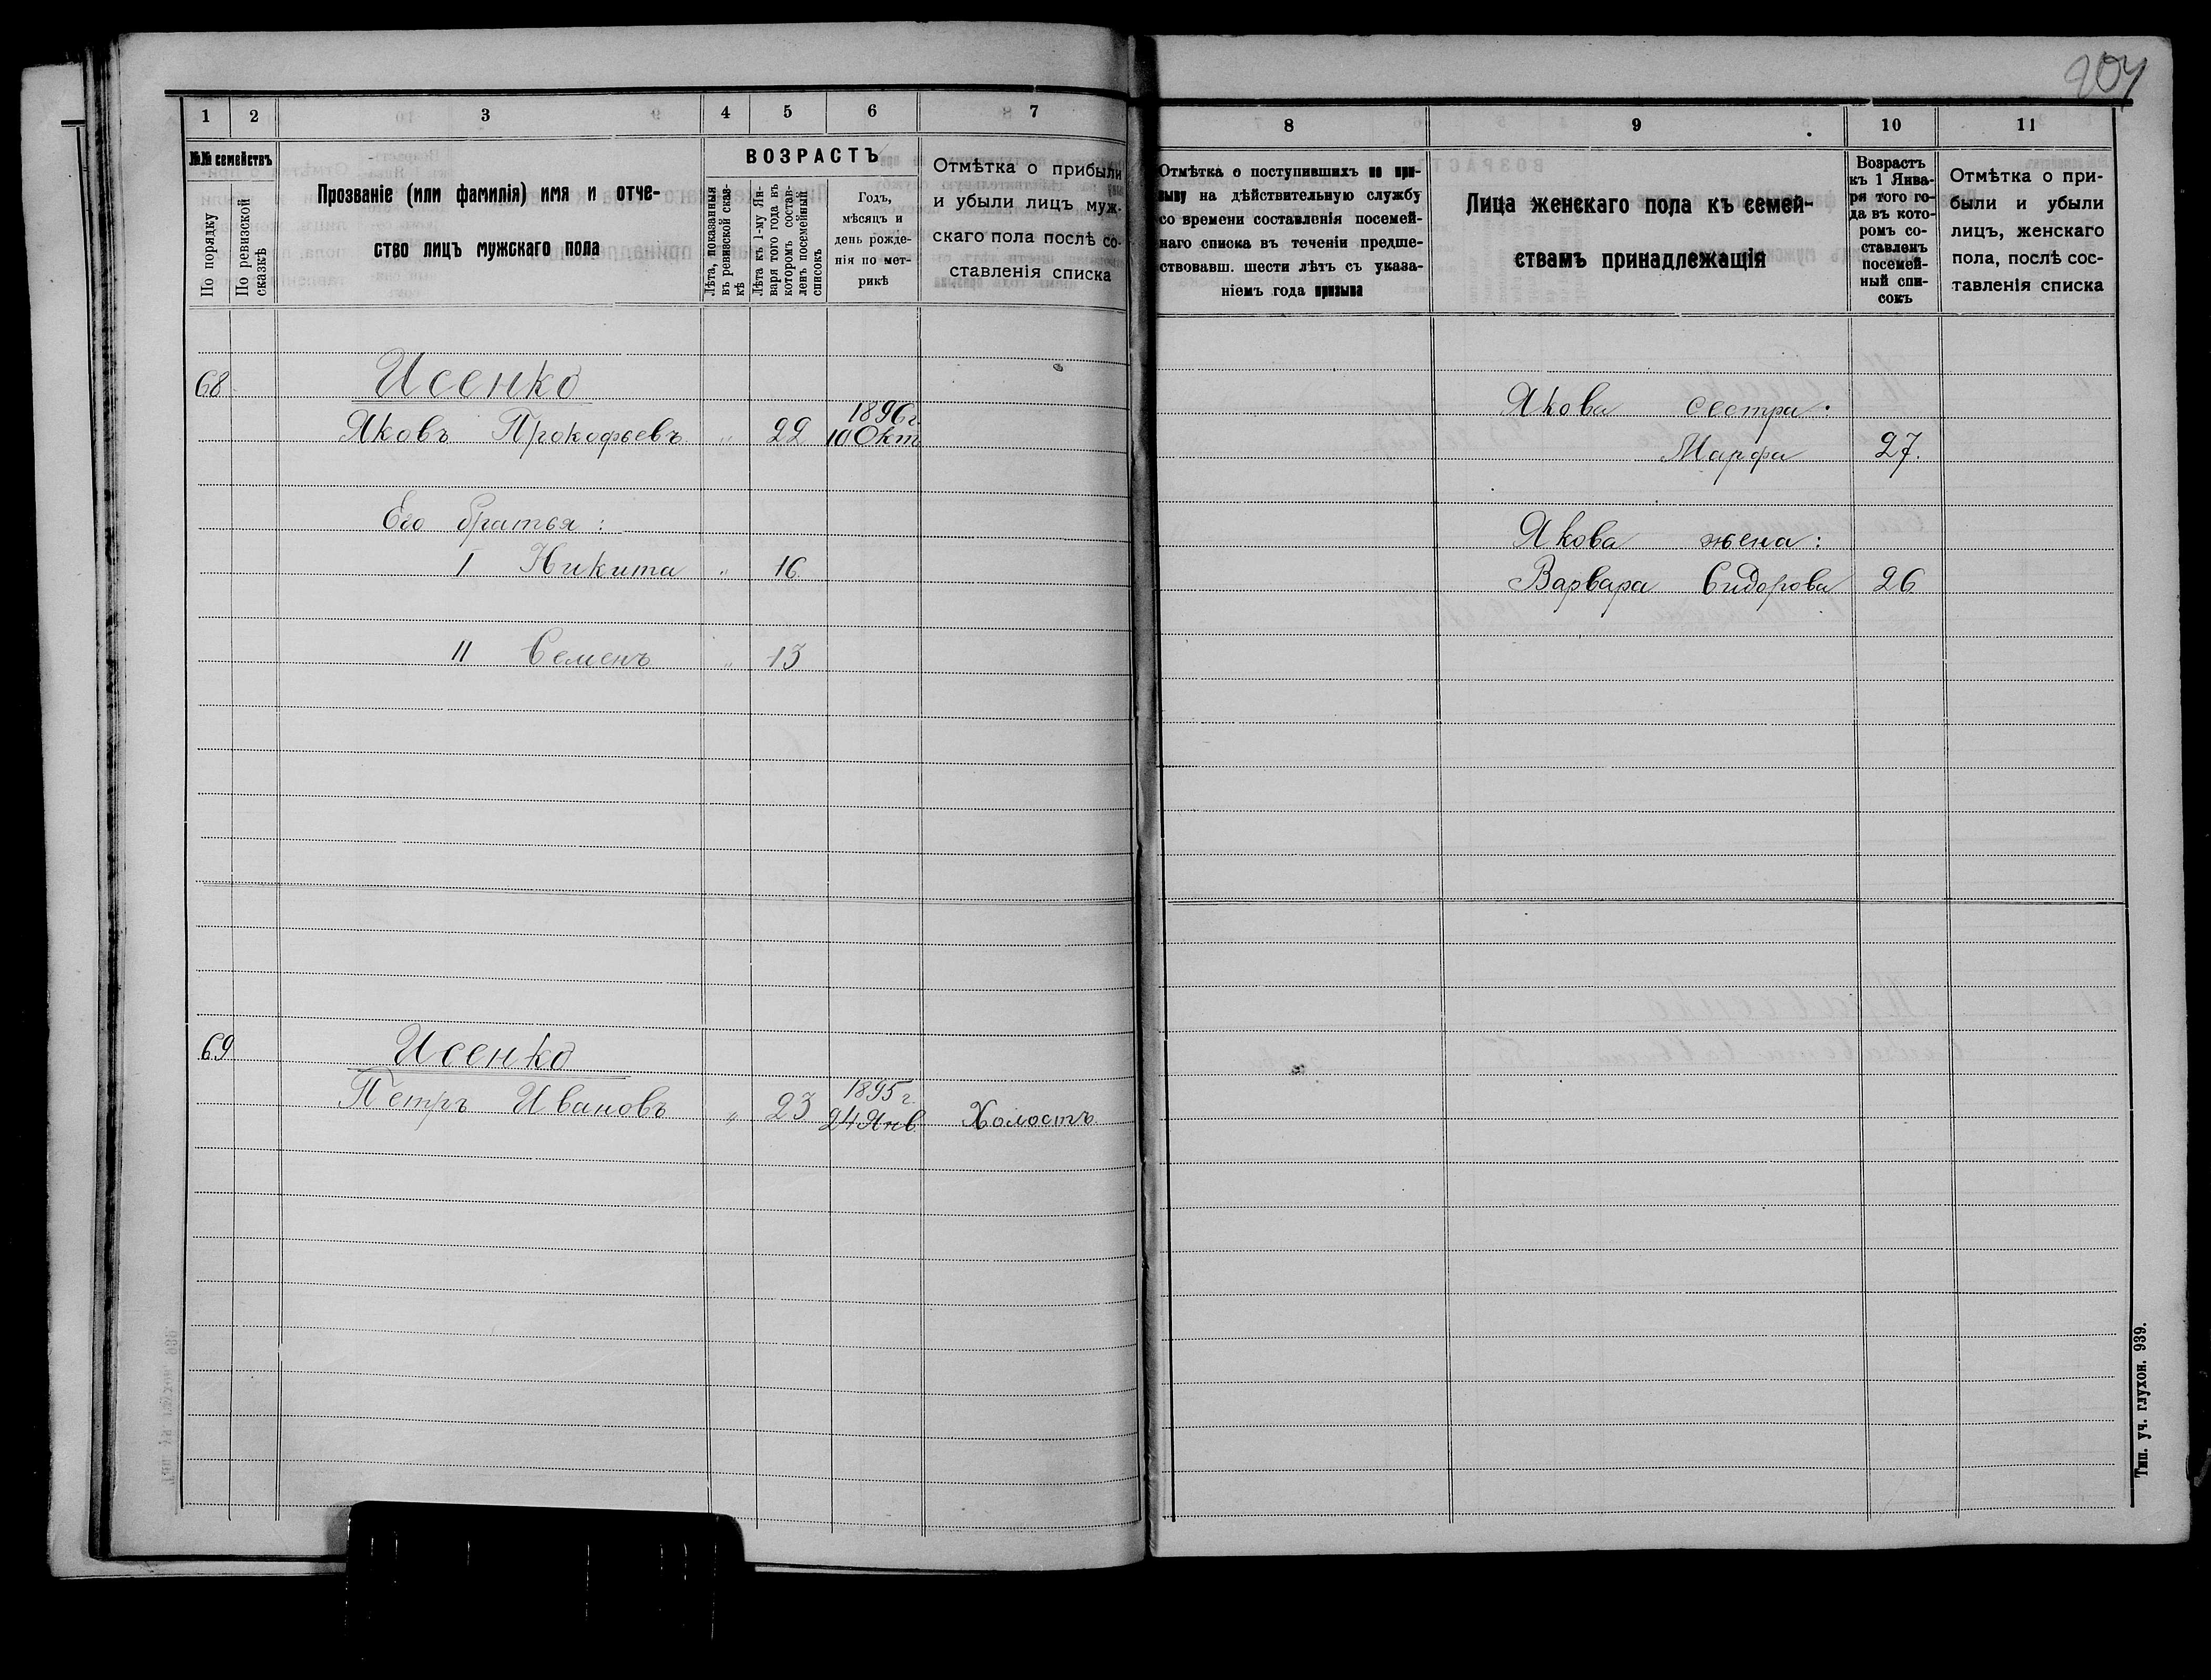 204
1 2 3 4 5 6 7
№№ семействъ
По порядку
По ревизской сказкѣ
Прозваніе (или фамилія) имя и отче-
ство лицъ мужскаго пола
ВОЗРАСТЪ
Лѣта, показанныя
въ ревизской сказ-
кѣ
Лѣта къ 1-му Ян-
варя того года въ
которомъ состав-
ленъ посемейный
списокъ
Годъ,
мѣсяцъ и
день рожде-
нія по мет-
рикѣ
Отмѣтка о прибыли
и убыли лицъ муж-
скаго пола послѣ со-
ставленія списка
68 Исенко
Яковъ Прокофьевъ " 22 1896г.
10 Окт
Его братья:
I Никита " 16.
II Семенъ " 13
69 Исенко
Петръ Ивановъ " 23 1895г.
24 Янв. Холостъ.
8 9 10 11
Отмѣтка о поступившихъ по при-
зыву на дѣйствительную службу
со времени составленія посемей-
наго списка въ теченіи предше-
ствовавш. шести лѣтъ съ указа-
ніемъ года призыва
Лица женскаго пола къ семей-
ствамъ принадлежащія
Возрастъ
къ 1 Янва-
ря того го-
да въ кото-
ромъ со-
ставленъ
посемей-
ный спи-
сокъ
Отмѣтка о при-
были и убыли
лицъ, женскаго
пола, послѣ сос-
тавленія списка
Якова сестра:
Марфа 27.
Якова жена:
Варвара Сидорова 26
Тип. уч. глухон. 939.